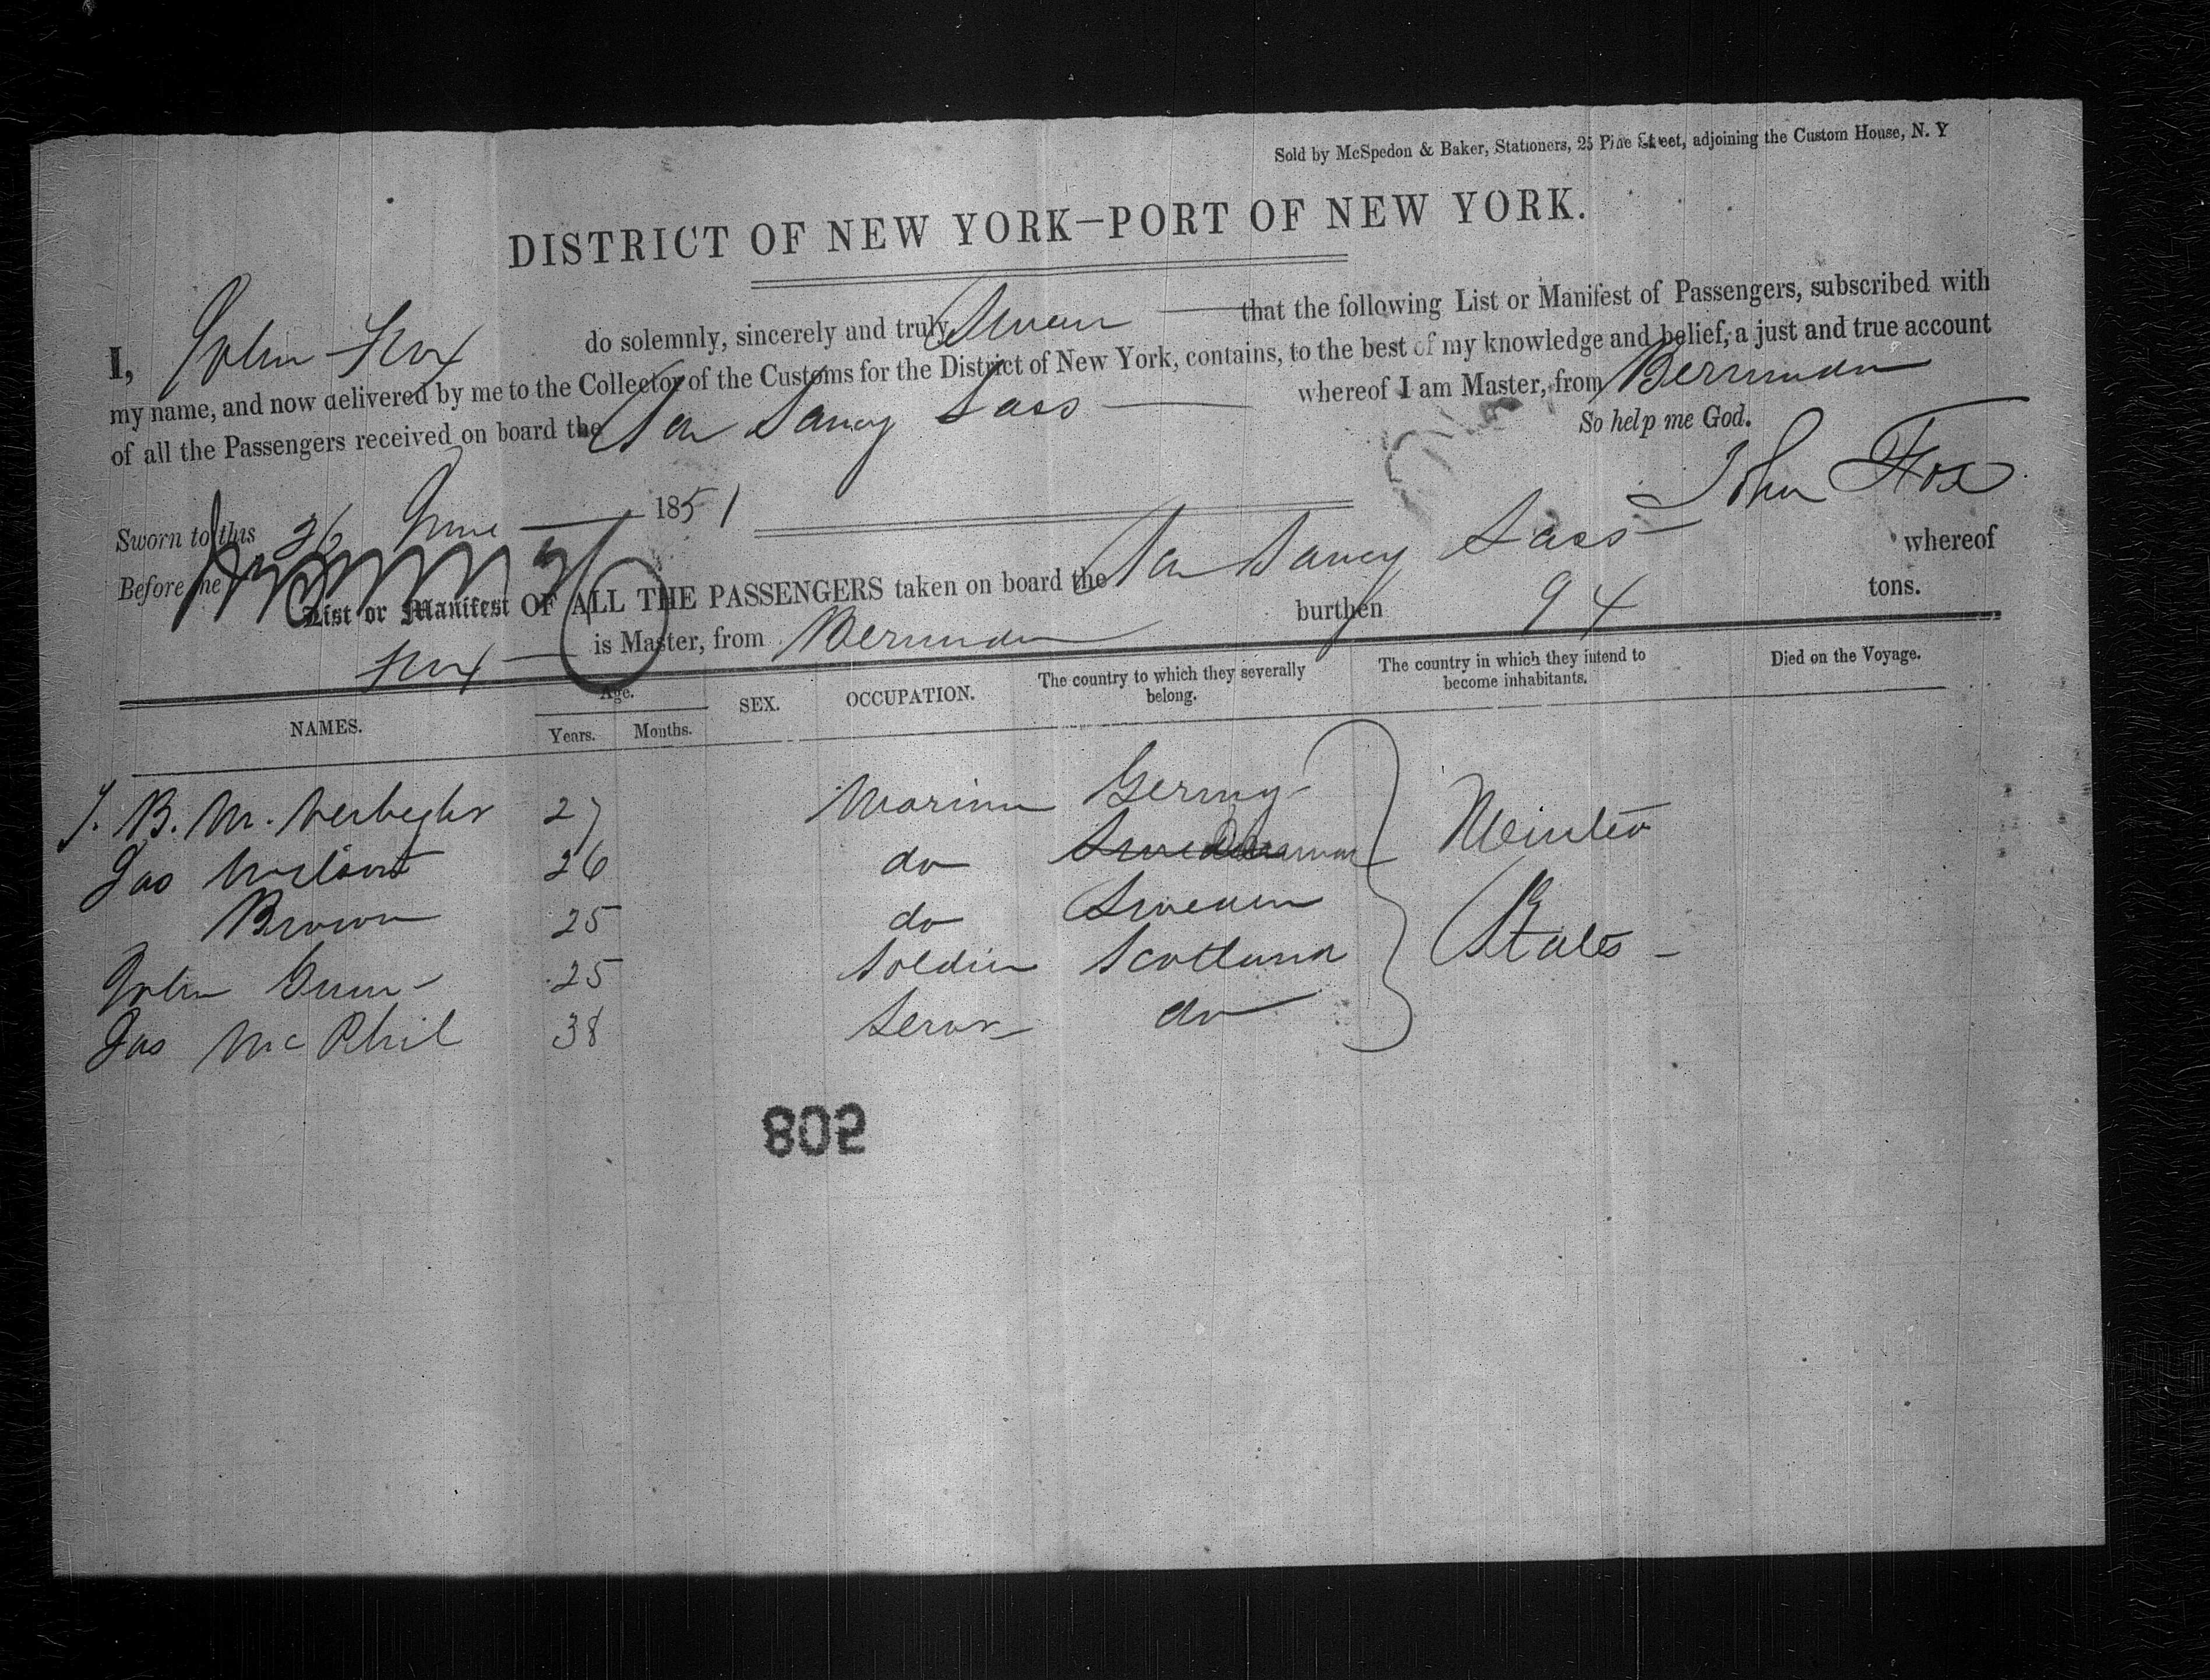 Sold by McSpedon & Baker, Stationers, 25 Pine Street, adjoining the Custom House, N. Y
DISTRICT OF NEW YORK—PORT OF NEW YORK.
I, John Fox do solemnly, sincerely and truly Swear that the following List or Manifest of Passengers, subscribed with
my name, and now delivered by me to the Collector of the Customs for the District of New York, contains, to the best of my knowledge and belief, a just and true account
of all the Passengers received on board the Saucy Lass whereof I am Master, from Bermuda
So help me God.
John Fox
Sworn to this 26 June 1851
Before me
List or Manifest OF ALL THE PASSENGERS taken on board the Saucy Lass whereof
Fox is Master, from Bermuda burthen 94 tons.
NAMES. Age. Years. Months. SEX. OCCUPATION. The country to which they severally belong. The country in which they intend to become inhabitants. Died on the Voyage.
J. B. M. 27 Marine Germy
Jas Wilson 26 do
Brown 25 do Sweden
John Gunn 25 Soldier Scotland
Jas McPhil 38 do
United
States
508